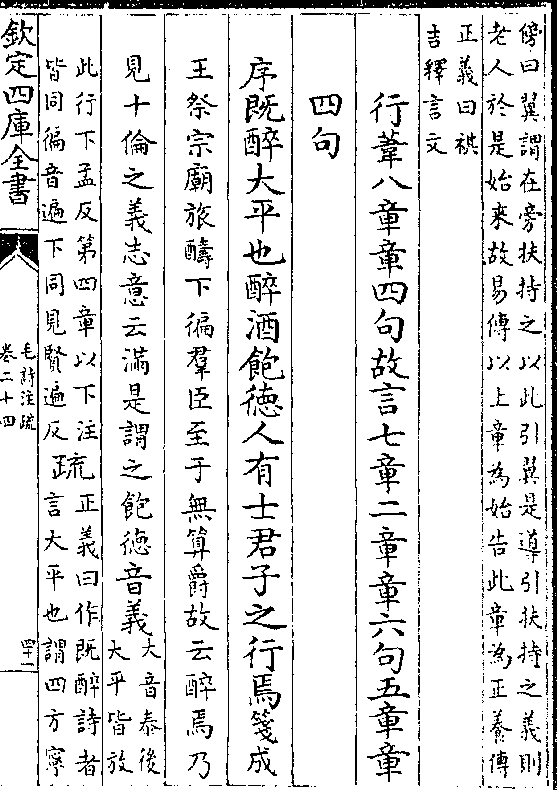 傍曰翼謂在旁扶持之以此引翼是導引扶持之義則
老人於是始來故易傳以上章為始告此章為正養傳
正義曰祺
吉釋言文
行葦八章章四句故言七章二章章六句五章章
四句
序既醉大平也醉酒飽徳人有士君子之行焉箋成
王祭宗廟旅醻下徧羣臣至于無算爵故云醉焉乃
見十倫之義志意云滿是謂之飽徳音義
大音泰後
大平皆放
此行下孟反第四章以下注
皆同徧音遍下同見賢遍反
疏
正義曰作既醉詩者
言大平也謂四方寧
欽定四庫全書
毛詩注疏
卷二十四
四十一